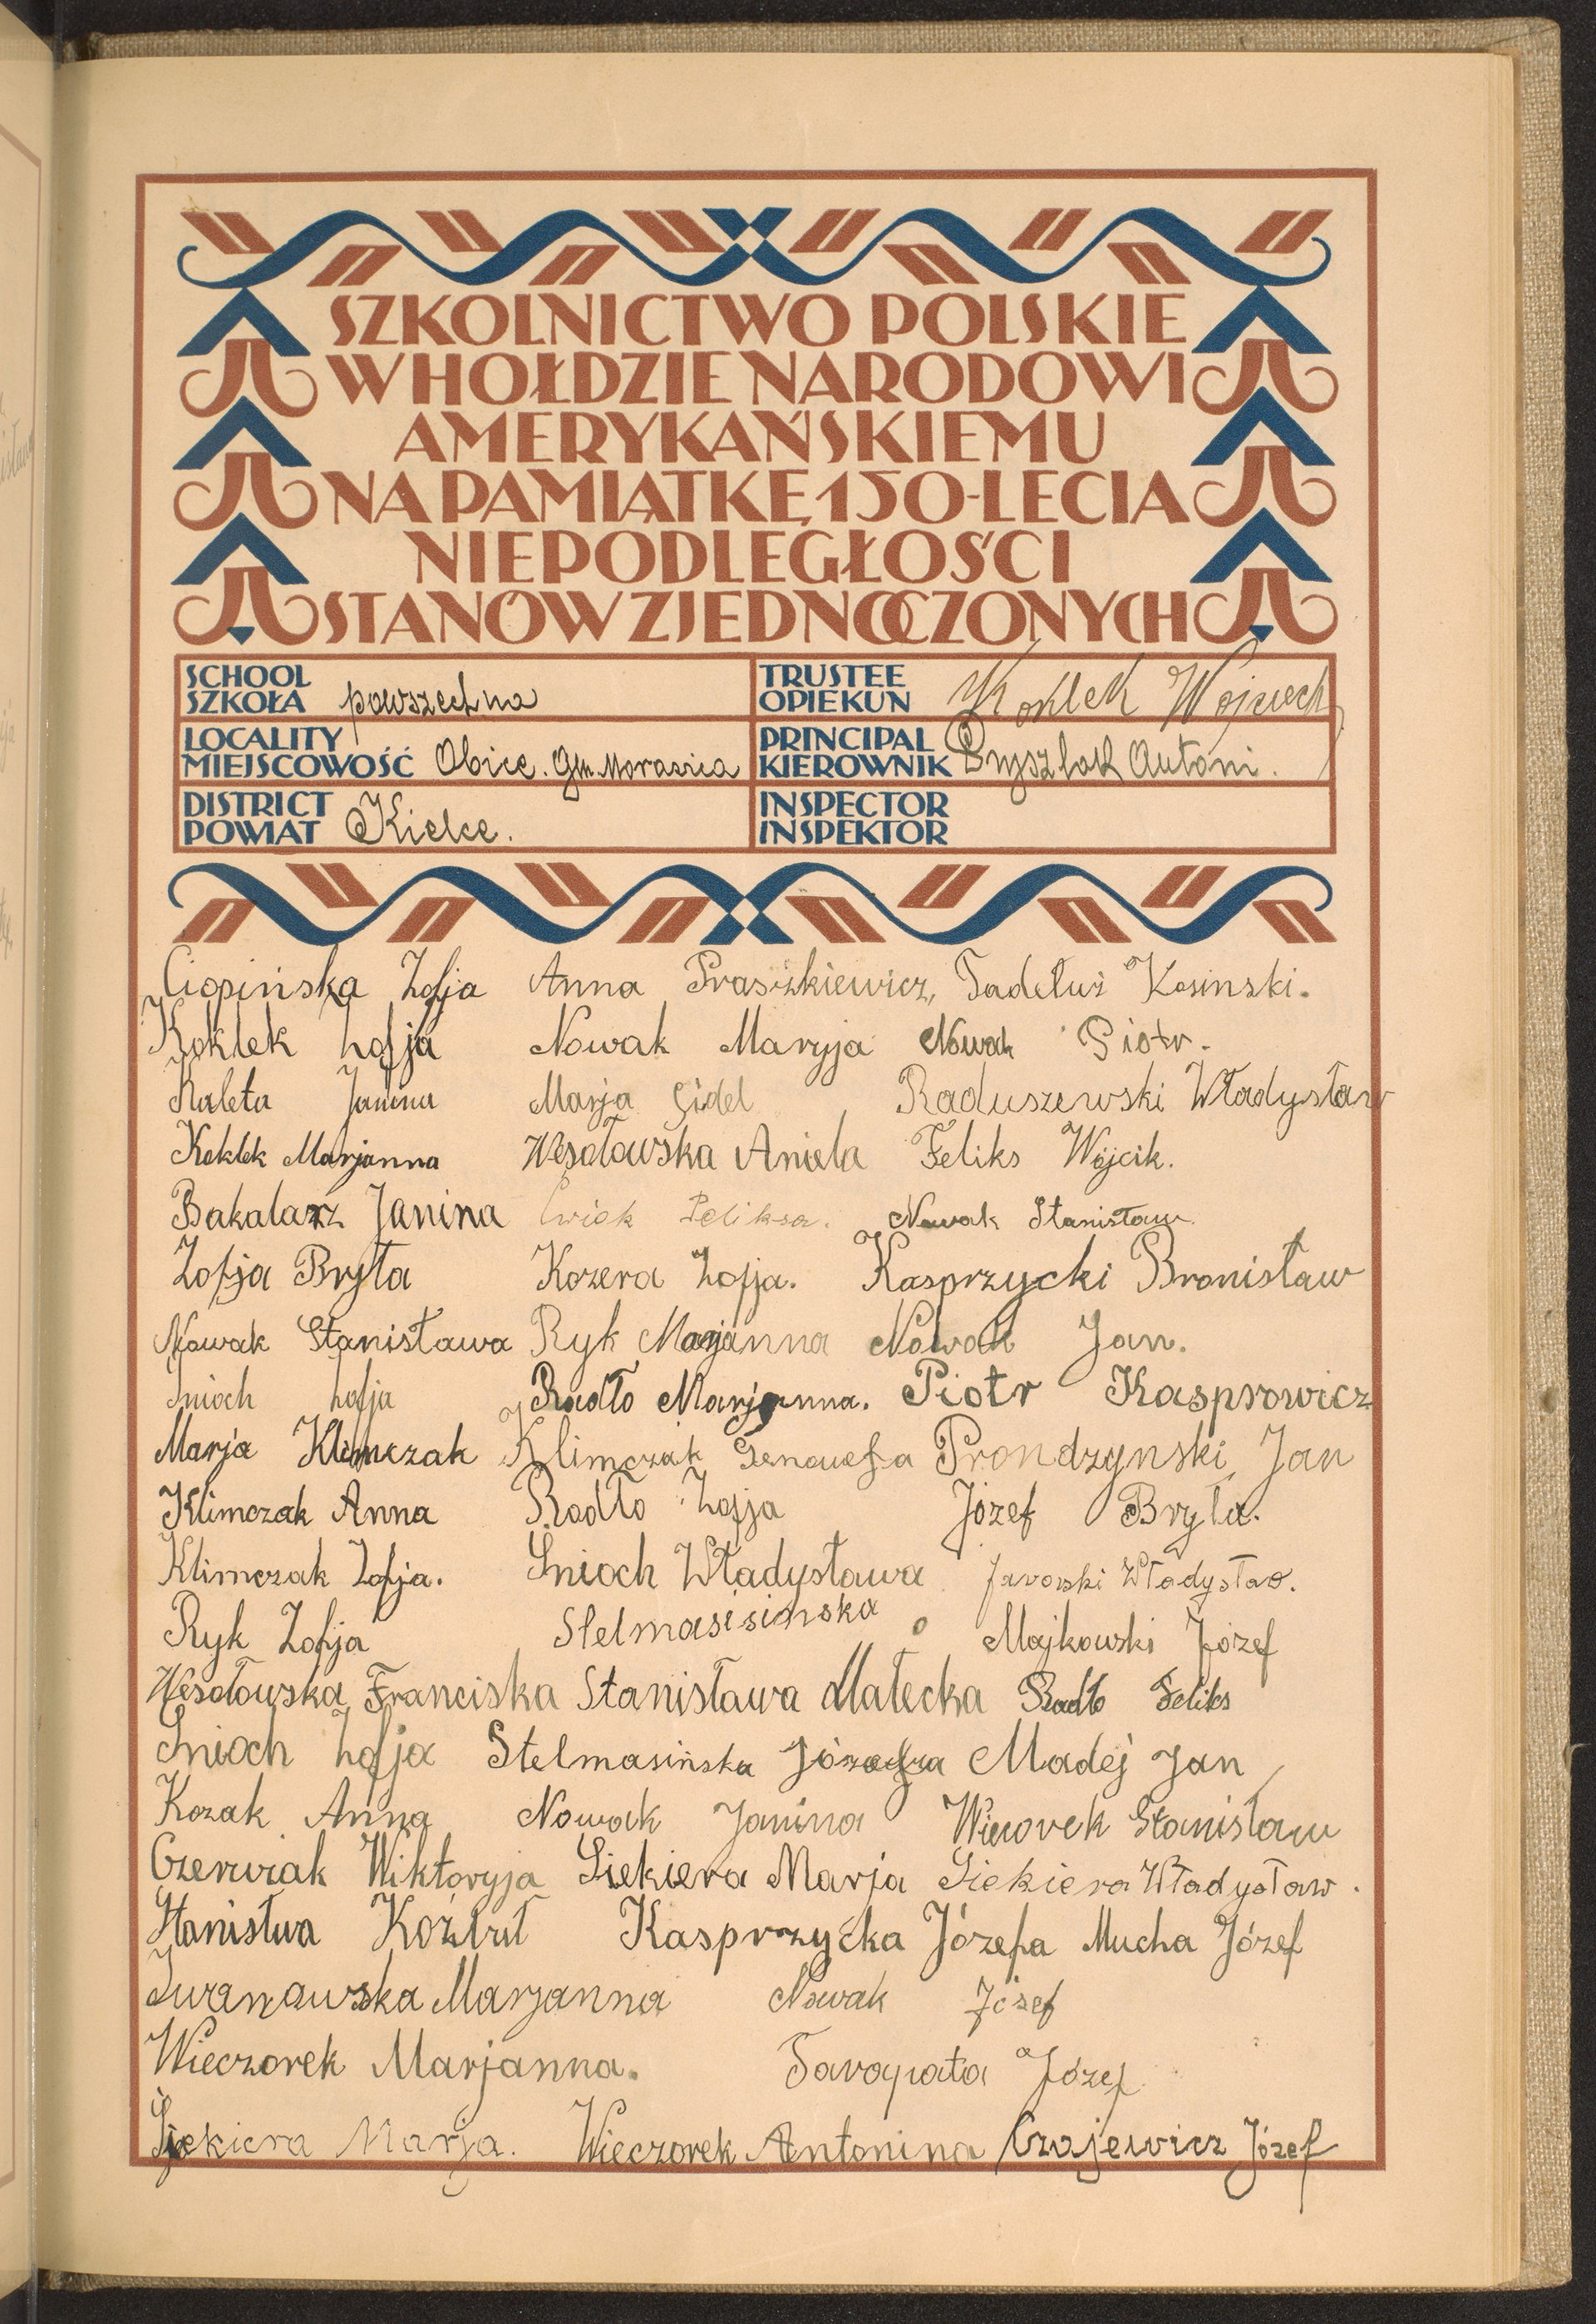 SZKOLNICTWO POLSKIE
W HOŁDZIE NARODOWI
AMERYKAŃSKIEMU
NA PAMIĄTKĘ 150-LECIA
NIEPODLEGŁOŚCI
STANÓW ZJEDNOCZONYCH
SCHOOL
SZKOŁA powszechna
TRUSTEE
OPIEKUN Koklek Wojciech
LOCALITY
MIEJSCOWOŚĆ Obice. Gm. Morawica
PRINCIPAL
KIEROWNIK Pryszlak Antoni.
DISTRICT
POWIAT Kielce.
INSPECTOR
INSPEKTOR
Ciopińska Zofja Anna Praszkiewicz, Tadeusz Kosinski.
Koklek Zofja Nowak Maryja Nowak Piotr.
Kaleta Janina Marja Gidel Raduszewski Władysław
Koklek Marjanna Wesołowska Aniela Feliks Wójcik.
Bakalarz Janina Cwiek Feliksa. Nowak Stanisław.
Zofja Bryła Kozera Zofja. Kasprzycki Bronisław
Nowak Stanisława Ryk Marjanna Nowak Jan.
Śnioch Zofja Radło Marjanna. Piotr Kasprowicz
Marja Klimczak Klimczak Genowefa Prondzynski Jan
Klimczak Anna Radło Zofja Józef Bryla.
Klimczak Zofja. Śnioch Władysława Javorski Władysłao.
Ryk Zofja Stelmasisinska Majkowski Józef
Wesołowska Franciska Stanisława Małecka Radło Feliks
Śnioch Zofja Stelmasińska Józefa Madej Jan
Kozak Anna Nowak Janina Stanisław
Czerwiak Wiktoryja Siekiera Marja Siekiera Władysław.
Stanistwa Kasprzycka Józefa Mucha Józef
Iwanowska Marjanna Nowak Józef
Wieczorek Marjanna. Tarapata Józef
Siekiera Marja. Wieczorek Antonina Czajewicz Józef